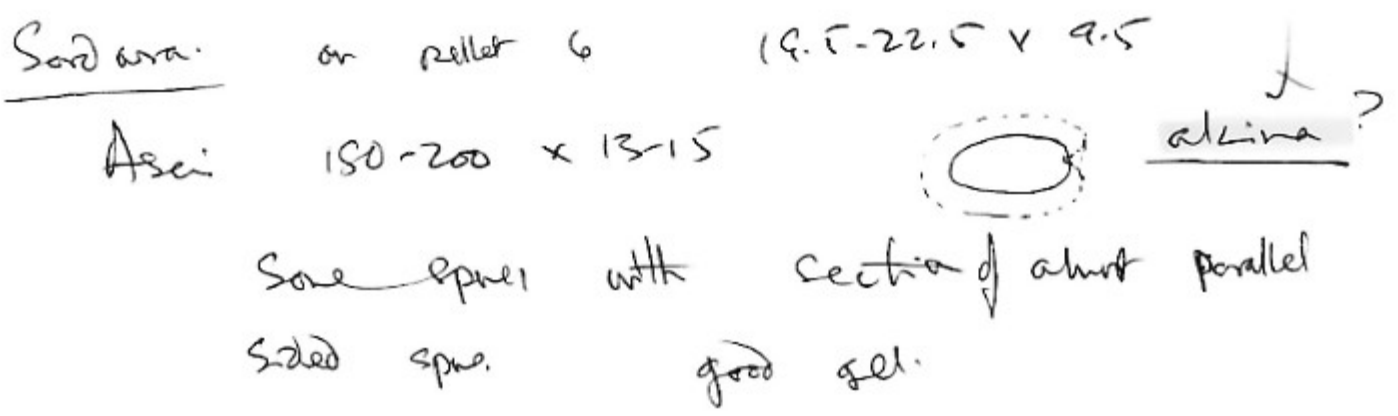 Sordaria. on pellet 6 19.5-22.5 x 9.5
Asci 150-200 x 13-15 alcina?
Some spores with section of almost parallel
sided spore. good gel.